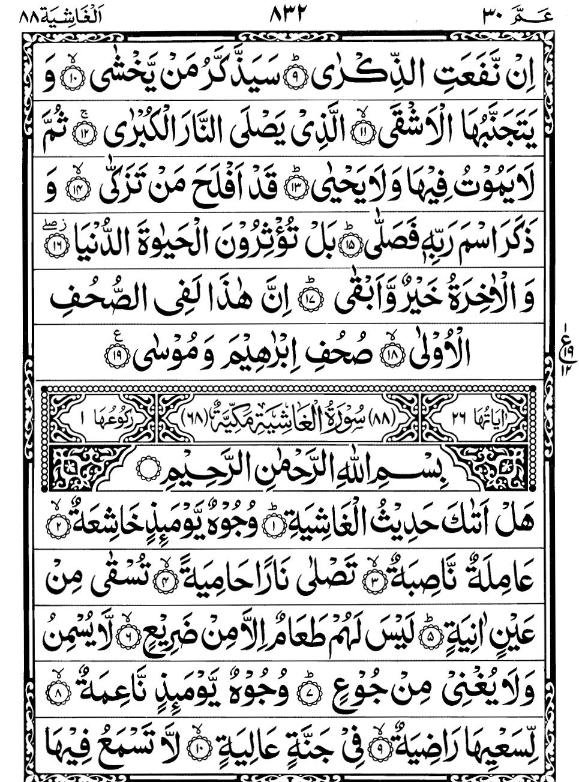 عَمَّ ٣٠ ٨٣٢ اَلْغَاشِيَة ٨٨
اِنْ نَّفَعَتِ الذِّكْرٰى ؕ﴿۹﴾ سَيَذَّكَّرُ مَنْ يَّخْشٰى ۙ﴿۱۰﴾ وَ
يَتَجَنَّبُهَا الْاَشْقَى ۙ﴿۱۱﴾ الَّذِىْ يَصْلَى النَّارَ الْكُبْرٰى ۚ﴿۱۲﴾ ثُمَّ
لَا يَمُوْتُ فِيْهَا وَ لَا يَحْيٰى ؕ﴿۱۳﴾ قَدْ اَفْلَحَ مَنْ تَزَكّٰى ۙ﴿۱۴﴾ وَ
ذَكَرَ اسْمَ رَبِّهٖ فَصَلّٰى ؕ﴿۱۵﴾ بَلْ تُؤْثِرُوْنَ الْحَيٰوةَ الدُّنْيَا ۖ﴿۱۶﴾
وَ الْاٰخِرَةُ خَيْرٌ وَّ اَبْقٰى ؕ﴿۱۷﴾ اِنَّ هٰذَا لَفِى الصُّحُفِ
الْاُوْلٰى ۙ﴿۱۸﴾ صُحُفِ اِبْرٰهِيْمَ وَ مُوْسٰى ﴿۱۹﴾
١ ع ١٩ ١٢
اٰيَاتُهَا ٢٦ (٨٨) سُوْرَةُ الْغَاشِيَةِ مَكِّيَّةٌ (٦٨) رُكُوْعُهَا ١
بِسْمِ اللهِ الرَّحْمٰنِ الرَّحِيْمِ
هَلْ اَتٰىكَ حَدِيْثُ الْغَاشِيَةِ ؕ﴿۱﴾ وُجُوْهٌ يَّوْمَئِذٍ خَاشِعَةٌ ۙ﴿۲﴾
عَامِلَةٌ نَّاصِبَةٌ ۙ﴿۳﴾ تَصْلٰى نَارًا حَامِيَةً ۙ﴿۴﴾ تُسْقٰى مِنْ
عَيْنٍ اٰنِيَةٍ ؕ﴿۵﴾ لَيْسَ لَهُمْ طَعَامٌ اِلَّا مِنْ ضَرِيْعٍ ۙ﴿۶﴾ لَّا يُسْمِنُ
وَ لَا يُغْنِىْ مِنْ جُوْعٍ ؕ﴿۷﴾ وُجُوْهٌ يَّوْمَئِذٍ نَّاعِمَةٌ ۙ﴿۸﴾
لِّسَعْيِهَا رَاضِيَةٌ ۙ﴿۹﴾ فِىْ جَنَّةٍ عَالِيَةٍ ۙ﴿۱۰﴾ لَّا تَسْمَعُ فِيْهَا